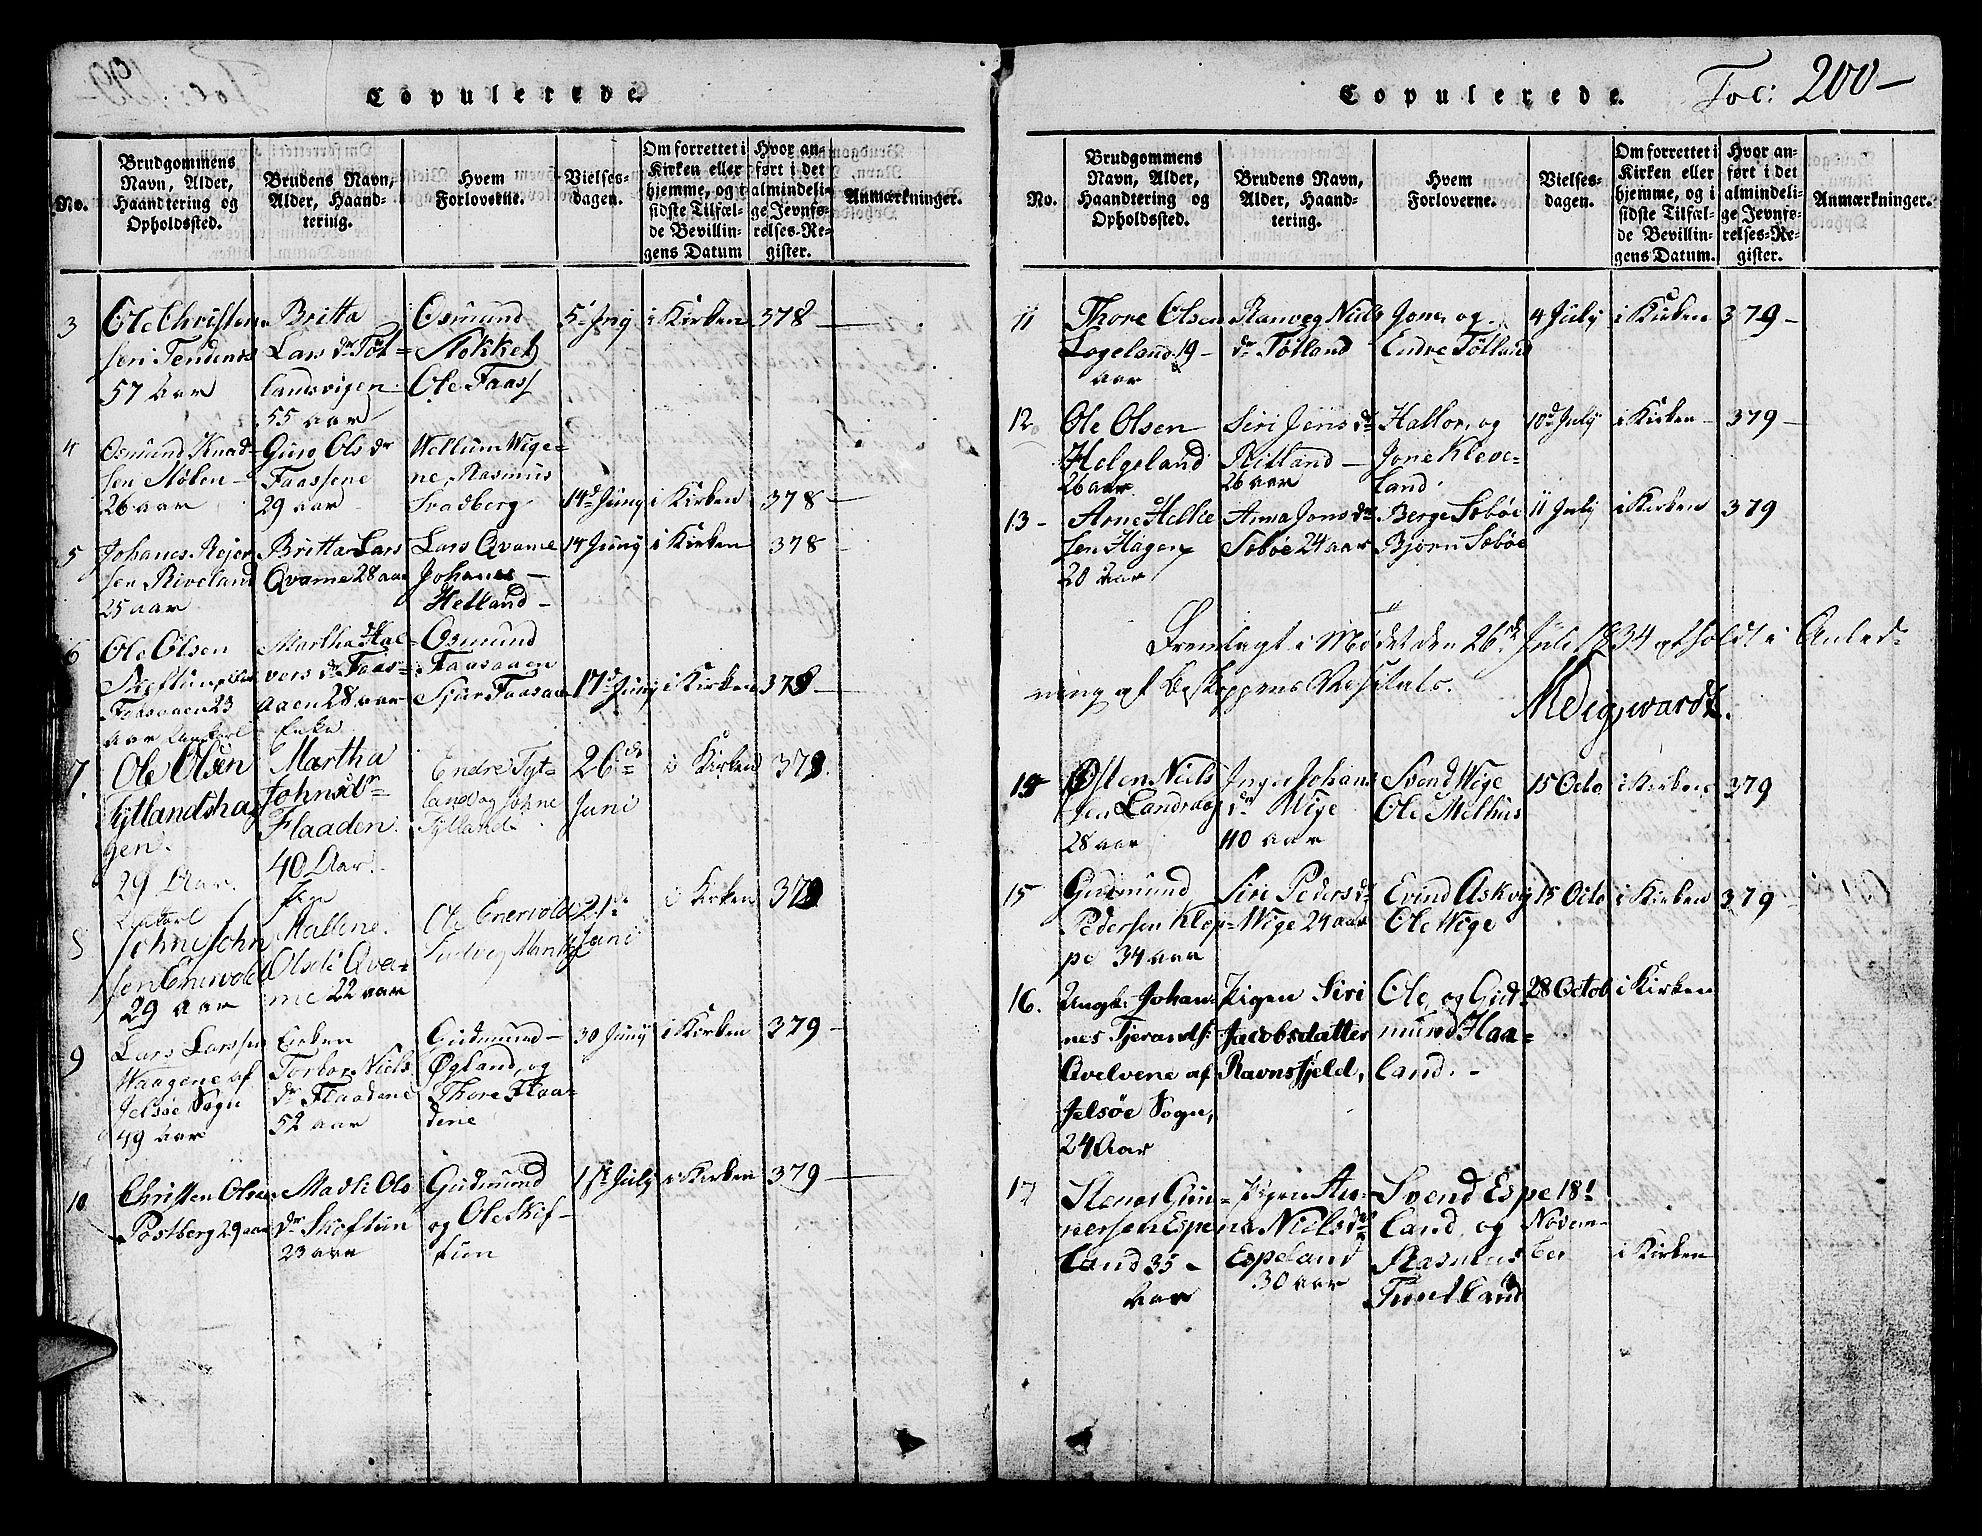 Copulerede.
No.
Brudgommens Navn, Alder, Haandtering og Opholdssted.
Brudens Navn, Alder, Haandtering.
Hvem Forloverne.
Vielsesdagen.
Om forrettet i Kirken eller hjemme, og i sidste Tilfælde Bevillingens Datum
Hvor anført i det almindelige Jevnførelses-Register.
Anmærkninger.
3
Ole Christensen Tendenes
57 Aar
Britta
Lars dr Tøtlandsvigen
55 aar
Osmund
Stokket
Ole Faass
5 Juny
i Kirken
378
4
Osmund Knudsen Stølen
26 aar
Guro Ols dr
Faassene
29 aar
Wigene, Rasmus
Svadberg
14d Juny
i Kirken
378
5
Johanes Rejersen Riveland
25 aar
Britta Lars
Qvame 28 aar
Lars Qvame
Johanes
Helland
14 Juny
i Kirken
378
6
Ole Olsen
Faasaaen 23
aar
Martha Halvers dr Faasaaen 28 aar
Enke
Osmund
Faasaaen
17d Juny
i Kirken
378
7.
Ole Olsen
Tytlandshagen.
29 Aar.
Martha
Johns dr
Flaaden.
40 Aar.
Pige
Endre Tytland og Johne
Tytland
26de
Juni
i Kirken
379.
8
Johne Johnsen Enervold
29 aar
Mallene
Olsdr Qvame 22 aar
Ole Enervold
21de
Juni
i Kirken
379
9
Lars Larssen
Waagene af
Jelsøe Sogn
49 aar
Enken
Torbor Niels
dr Flaadene
52 aar
Gudmund
Øgland, og
Thore Flaadene
30 Juny
i Kirken
379
10
Christen Olsen
Postberg 29 aar
Madli Ols
dr Skiftun
23 aar
Gudmund
og Ole Skiftun
1st July
i Kirken
379
Copulerede.
Fol: 200
No.
Brudgommens Navn, Alder, Haandtering og Opholdssted.
Brudens Navn, Alder, Haandtering.
Hvem Forloverne.
Vielsesdagen.
Om forrettet i Kirken eller hjemme, og i sidste Tilfælde Bevillingens Datum.
Hvor anført i det almindelige Jevnførelses-Register.
Anmærkninger.
11
Thore Olsen
Logeland 19
aar
Ranveg Niels
dr Tøtland
Jone, og
Endre Tøtland
4 July
i Kirken
379
12
Ole Olsen
Helgeland
26 aar
Siri Jens dr
Ritland
26 aar
Hallor, og
Jone Kleveland
10d July
i Kirken
379
13
Arne Hellie
sen Hagen
20 Aar
Anna Jons dr
Søbøe 24 aar
Berge Søbøe
Bjørn Søbøe
11 July
i Kirken
379
Fremlagt i Mødet den 26de Juli 1834 afholdt i Anledning af Biskoppens Visitats.
Østen Niels
28 aar
Inger Johans
dr Wige
40 aar
Svend Wige
Ole Melhus
15 Octo
i Kirken
379
15
Gudmund
Pedersen Kloppe 34 aar
Siri Peders dr
Wige 24 aar
Evind Askvig
Ole Wige
15 Octo
i Kirken
379
16.
Ungk: Johannes Tjerands:
Qvelvene af
Jelsøe Sogn,
24 Aar
Pigen Siri
Jacobsdatter
Ravnsfjeld,
Ole og Gudmund Haaland.
28 Octob
i Kirken
17
Stenes Gunnersen Espeland 35
Aar
Pigen Anna Niels dr
Espeland
30 aar
Svend Espeland, og
Rasmus
Tuntland
18
November
i Kirken